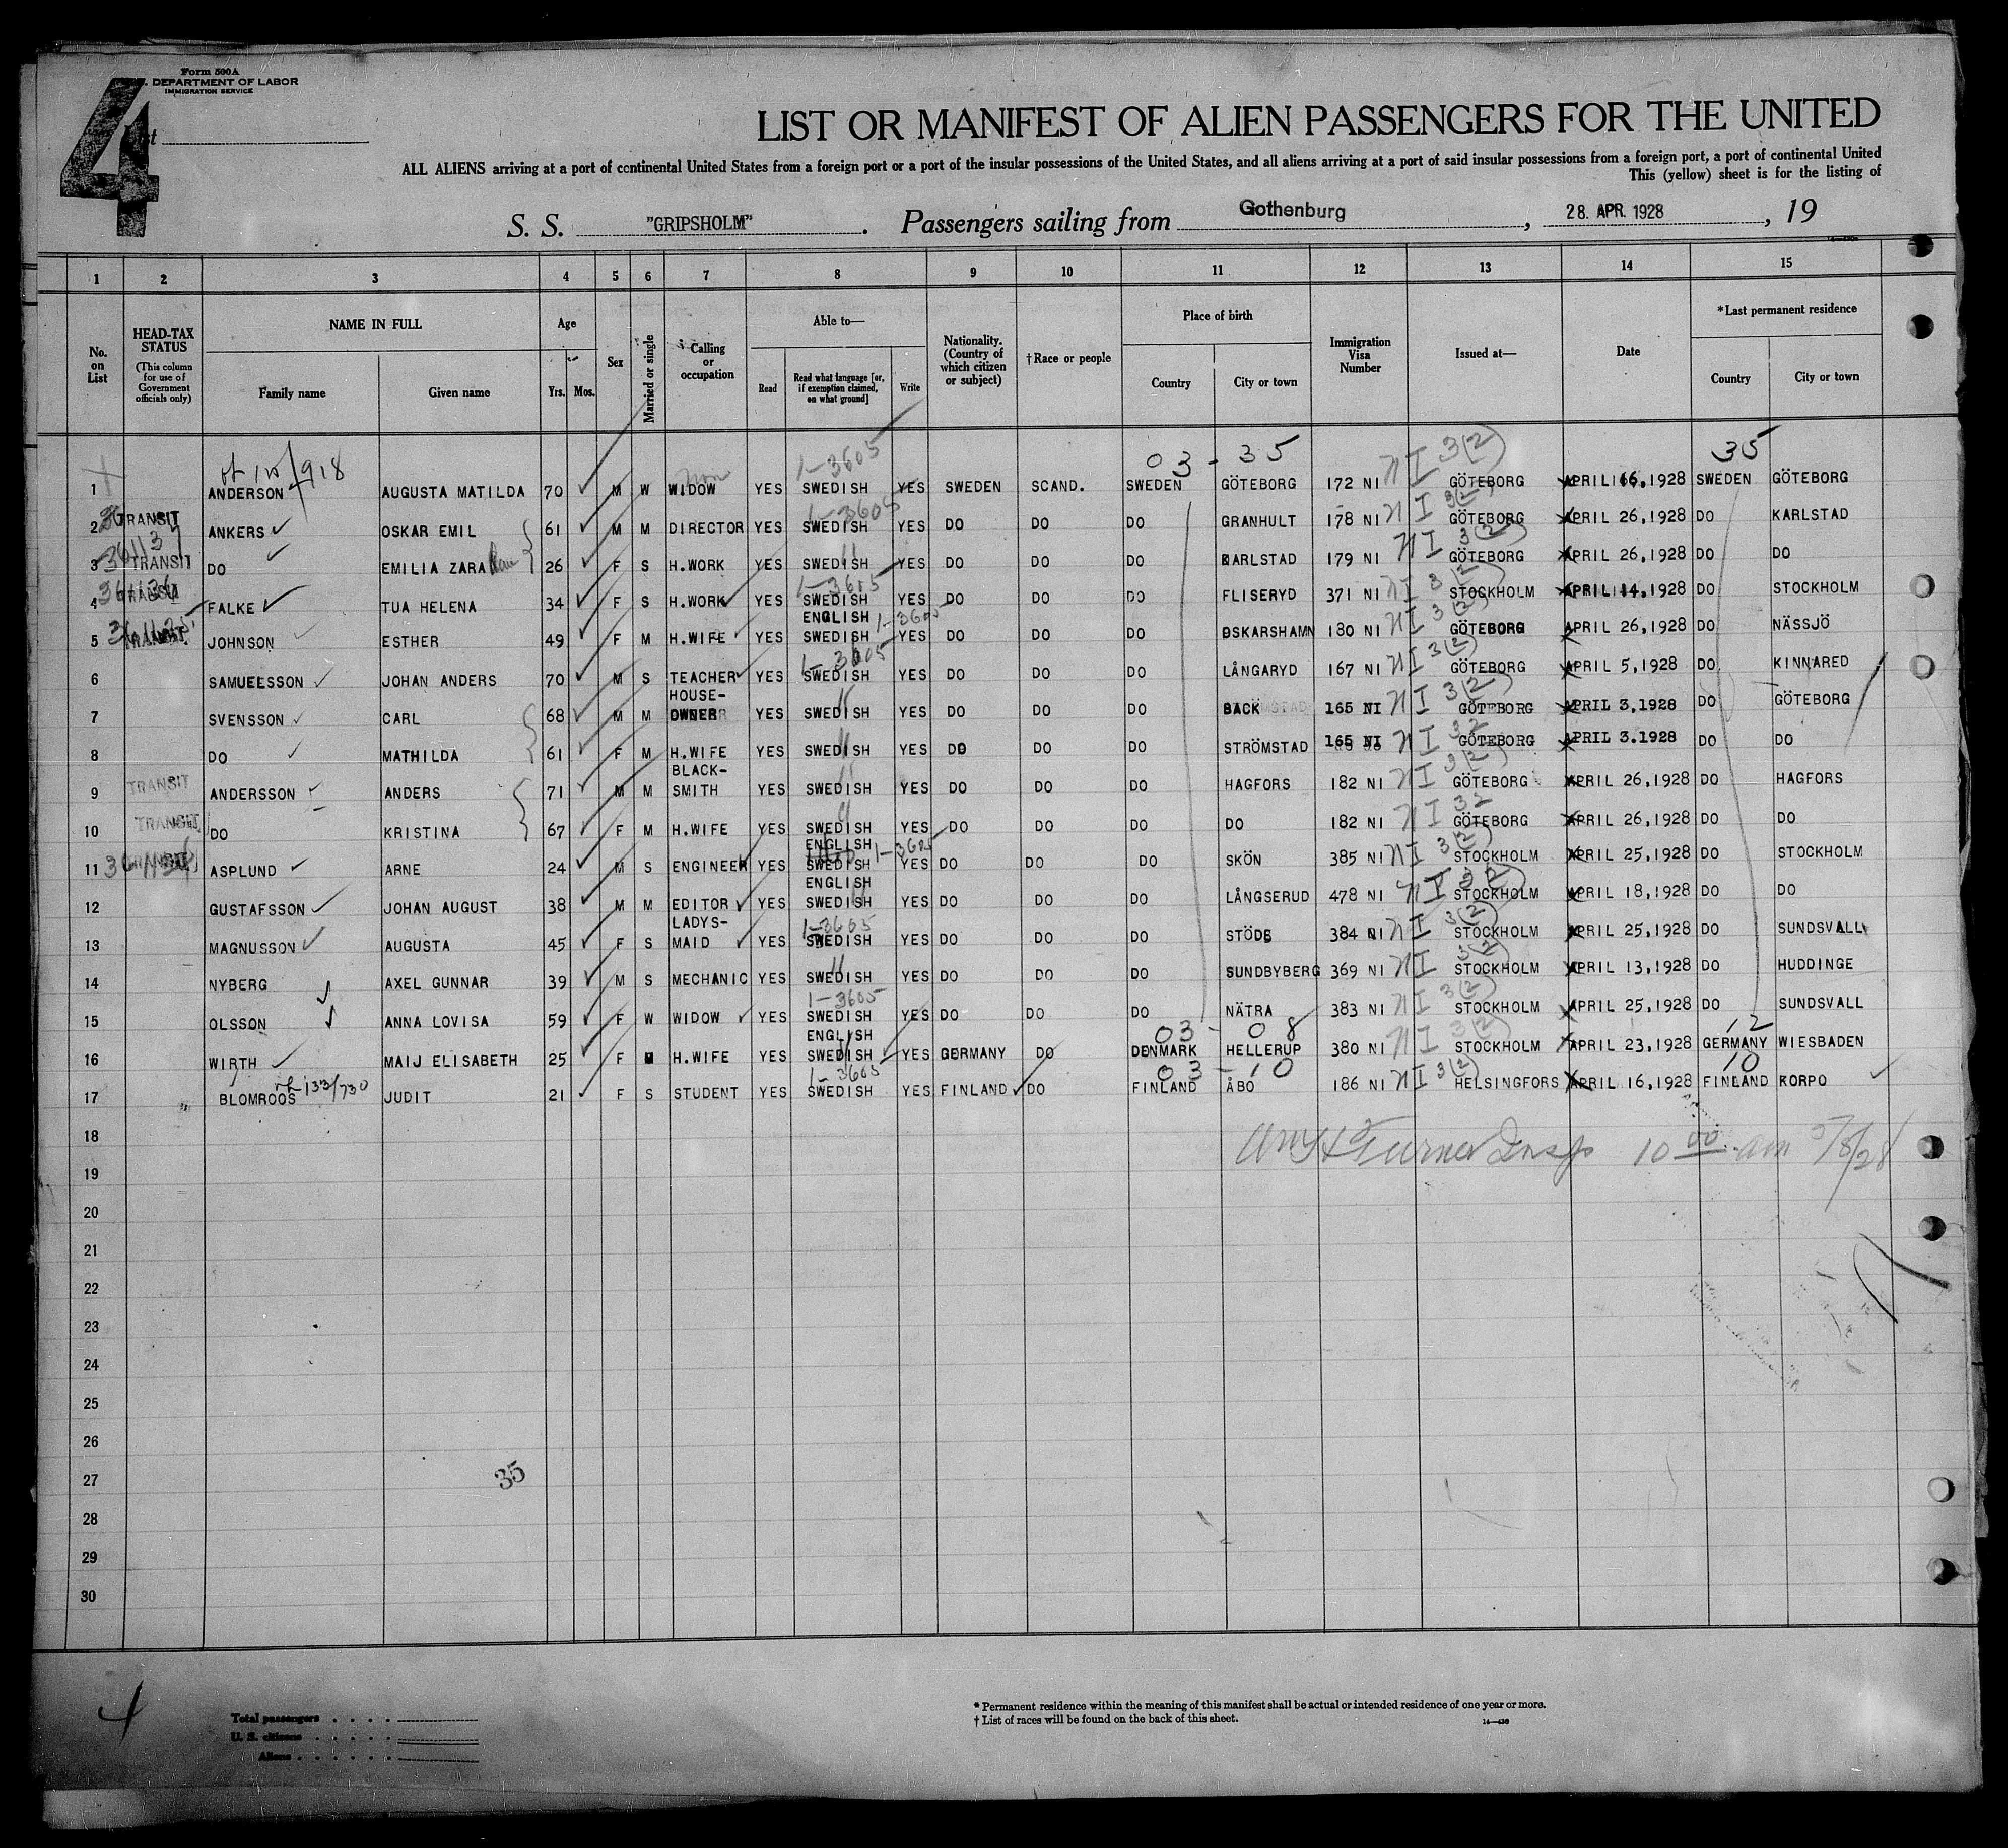 Form 500A
DEPARTMENT OF LABOR
IMMIGRATION SERVICE
4
LIST OR MANIFEST OF ALIEN PASSENGERS FOR THE UNITED
ALL ALIENS arriving at a port of continental United States from a foreign port or a port of the insular possessions of the United States, and all aliens arriving at a port of said insular possessions from a foreign port, a port of continental United
This (yellow) sheet is for the listing of
S. S. "GRIPSHOLM". Passengers sailing from Gothenburg, 28. APR. 1928, 19
1 2 3 4 5 6 7 8 9 10 11 12 13 14 15
No. on List
HEAD-TAX STATUS (This column for use of Government officials only)
NAME IN FULL
Family name Given name
Age
Yrs. Mos.
Sex
Married or single
Calling or occupation
Able to—
Read Read what language [or, if exemption claimed, on what ground] Write
Nationality. (Country of which citizen or subject)
†Race or people
Place of birth
Country City or town
Immigration Visa Number
Issued at—
Date
*Last permanent residence
Country City or town
918 1-3605 03 - 35 NI 3(2) 35
1 ANDERSON AUGUSTA MATILDA 70 M W WIDOW YES SWEDISH YES SWEDEN SCAND. SWEDEN GÖTEBORG 172 NI GÖTEBORG APRIL 16, 1928 SWEDEN GÖTEBORG
1-3605 NI 3(2)
2 TRANSIT ANKERS OSKAR EMIL 61 M M DIRECTOR YES SWEDISH YES DO DO DO GRANHULT 178 NI GÖTEBORG APRIL 26, 1928 DO KARLSTAD
361137 NI 3(2)
3 TRANSIT DO EMILIA ZARA 26 F S H.WORK YES SWEDISH YES DO DO DO KARLSTAD 179 NI GÖTEBORG APRIL 26, 1928 DO DO
361136 1-3605 NI 3(2)
4 TRANSIT FALKE TUA HELENA 34 F S H.WORK YES SWEDISH YES DO DO DO FLISERYD 371 NI STOCKHOLM APRIL 14, 1928 DO STOCKHOLM
ENGLISH 1-3605 NI 3(2)
5 TRANSIT JOHNSON ESTHER 49 F M H.WIFE YES SWEDISH YES DO DO DO OSKARSHAMN 180 NI GÖTEBORG APRIL 26, 1928 DO NÄSSJÖ
1-3605 NI 3(2)
6 SAMUELSSON JOHAN ANDERS 70 M S TEACHER YES SWEDISH YES DO DO DO LÅNGARYD 167 NI GÖTEBORG APRIL 5, 1928 DO KINNARED
HOUSE- NI 3(2)
7 SVENSSON CARL 68 M M OWNER YES SWEDISH YES DO DO DO BACK 165 NI GÖTEBORG APRIL 3, 1928 DO GÖTEBORG
NI 32
8 DO MATHILDA 61 F M H.WIFE YES SWEDISH YES DO DO DO STRÖMSTAD 165 NI GÖTEBORG APRIL 3. 1928 DO DO
BLACK- NI 3(2)
9 TRANSIT ANDERSSON ANDERS 71 M M SMITH YES SWEDISH YES DO DO DO HAGFORS 182 NI GÖTEBORG APRIL 26, 1928 DO HAGFORS
NI 32
10 TRANSIT DO KRISTINA 67 F M H.WIFE YES SWEDISH YES DO DO DO DO 182 NI GÖTEBORG APRIL 26, 1928 DO DO
ENGLISH 1-3605 NI 3(2)
11 ASPLUND ARNE 24 M S ENGINEER YES SWEDISH YES DO DO DO SKÖN 385 NI STOCKHOLM APRIL 25, 1928 DO STOCKHOLM
ENGLISH NI 3(2)
12 GUSTAFSSON JOHAN AUGUST 38 M M EDITOR YES SWEDISH YES DO DO DO LÅNGSERUD 478 NI STOCKHOLM APRIL 18, 1928 DO DO
LADYS- 1-3605 NI 3(2)
13 MAGNUSSON AUGUSTA 45 F S MAID YES SWEDISH YES DO DO DO STÖDE 384 NI STOCKHOLM APRIL 25, 1928 DO SUNDSVALL
NI 3(2)
14 NYBERG AXEL GUNNAR 39 M S MECHANIC YES SWEDISH YES DO DO DO SUNDBYBERG 369 NI STOCKHOLM APRIL 13, 1928 DO HUDDINGE
1-3605 NI 3(2)
15 OLSSON ANNA LOVISA 59 F W WIDOW YES SWEDISH YES DO DO DO NÄTRA 383 NI STOCKHOLM APRIL 25, 1928 DO SUNDSVALL
ENGLISH 03 - 08 NI 3(2) 12
16 WIRTH MAIJ ELISABETH 25 F M H.WIFE YES SWEDISH YES GERMANY DO DENMARK HELLERUP 380 NI STOCKHOLM APRIL 23, 1928 GERMANY WIESBADEN
133/730 1-3605 03 - 10 NI 3(2) 10
17 BLOMROOS JUDIT 21 F S STUDENT YES SWEDISH YES FINLAND DO FINLAND ÅBO 186 NI HELSINGFORS APRIL 16, 1928 FINLAND KORPO
18
Turner Insp 10 00 am 5/8/28
19
20
21
22
23
24
25
26
27
35
28
29
30
4
Total passengers
U. S. citizens
Aliens
* Permanent residence within the meaning of this manifest shall be actual or intended residence of one year or more.
† List of races will be found on the back of this sheet.
14—430